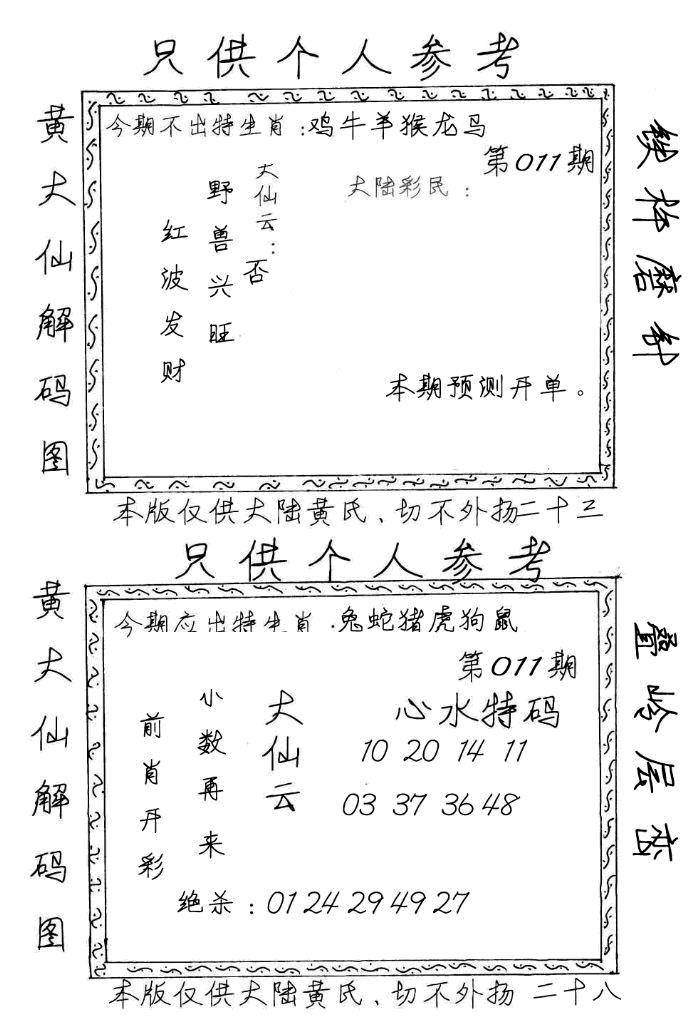 只供个人参考
黄大仙解码图
今期不出特生肖：鸡牛羊猴龙马
第011期
大陆彩民：
大仙云：否
野兽兴旺
红波发财
本期预测开单。
铁杵磨针
本版仅供大陆黄氏、切不外扬二十三
只供个人参考
黄大仙解码图
今期应出特生肖：兔蛇猪虎狗鼠
第011期
心水特码
10 20 14 11
03 37 36 48
大仙云
小数再来
前肖开彩
绝杀：01 24 29 49 27
叠岭层峦
本版仅供大陆黄氏、切不外扬 二十八